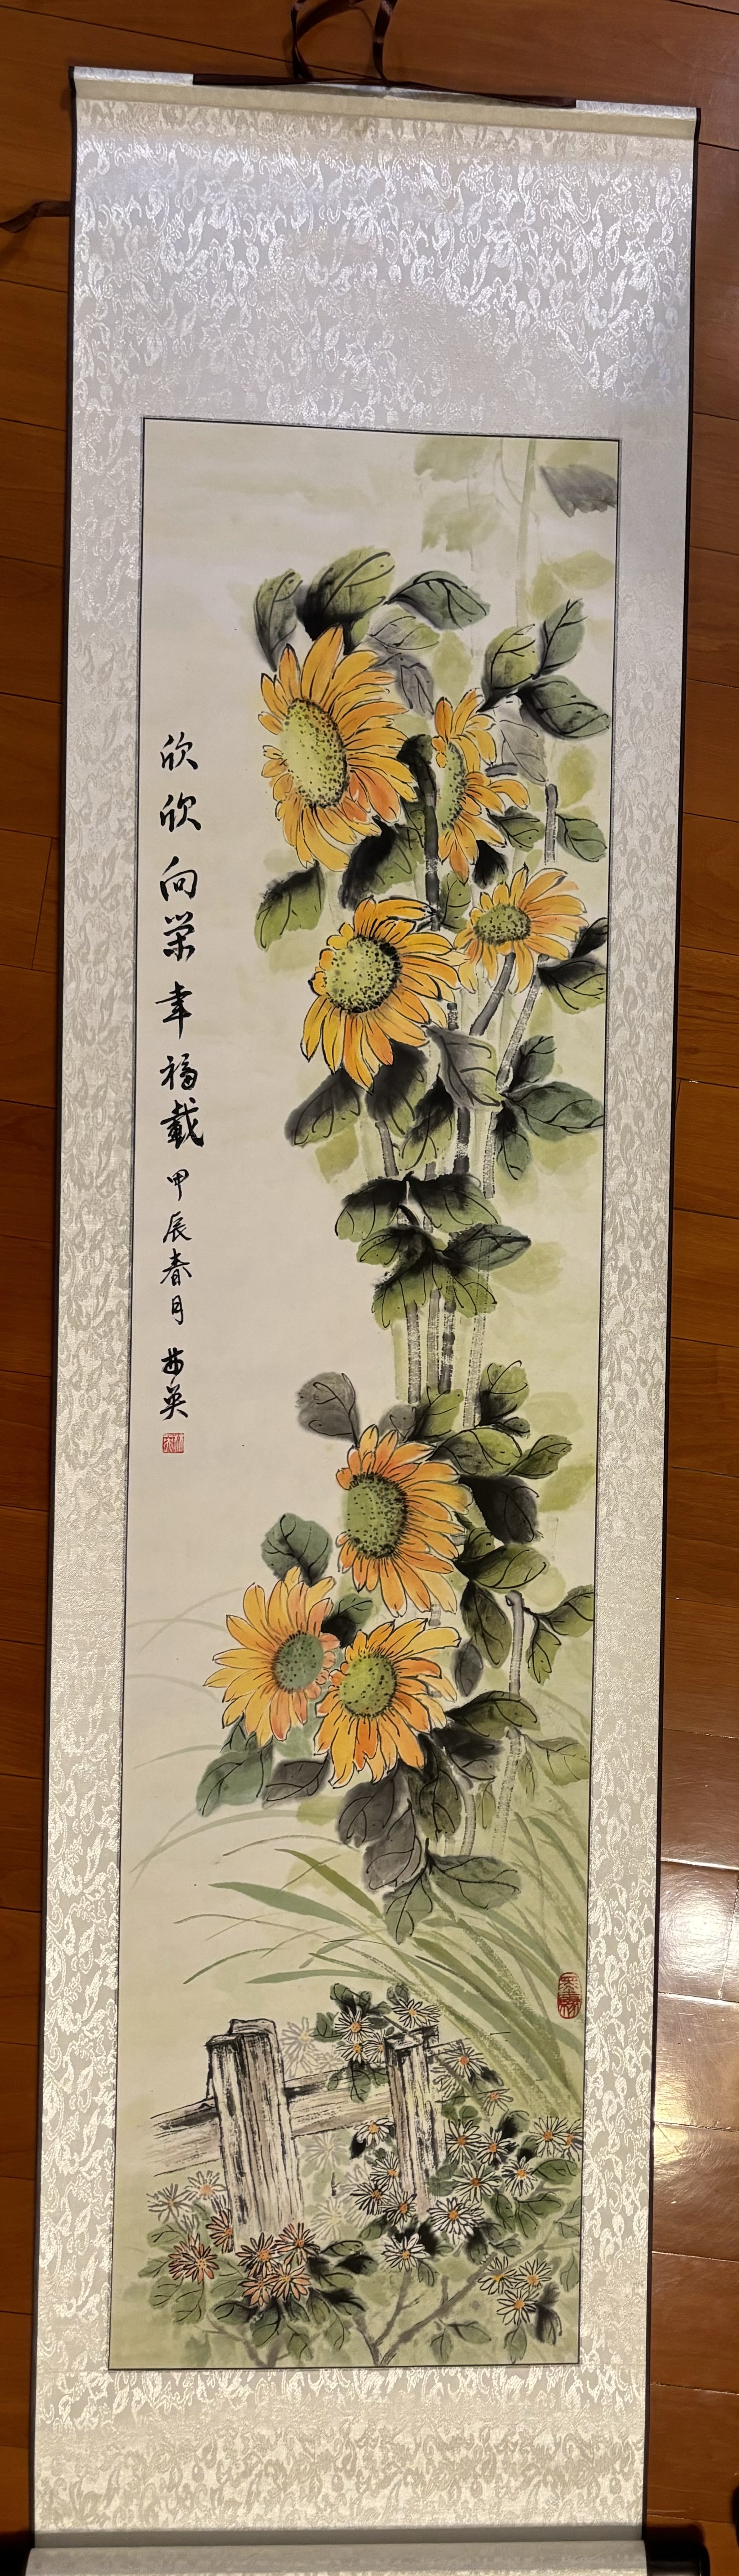 欣欣向榮幸福載甲辰春月 英